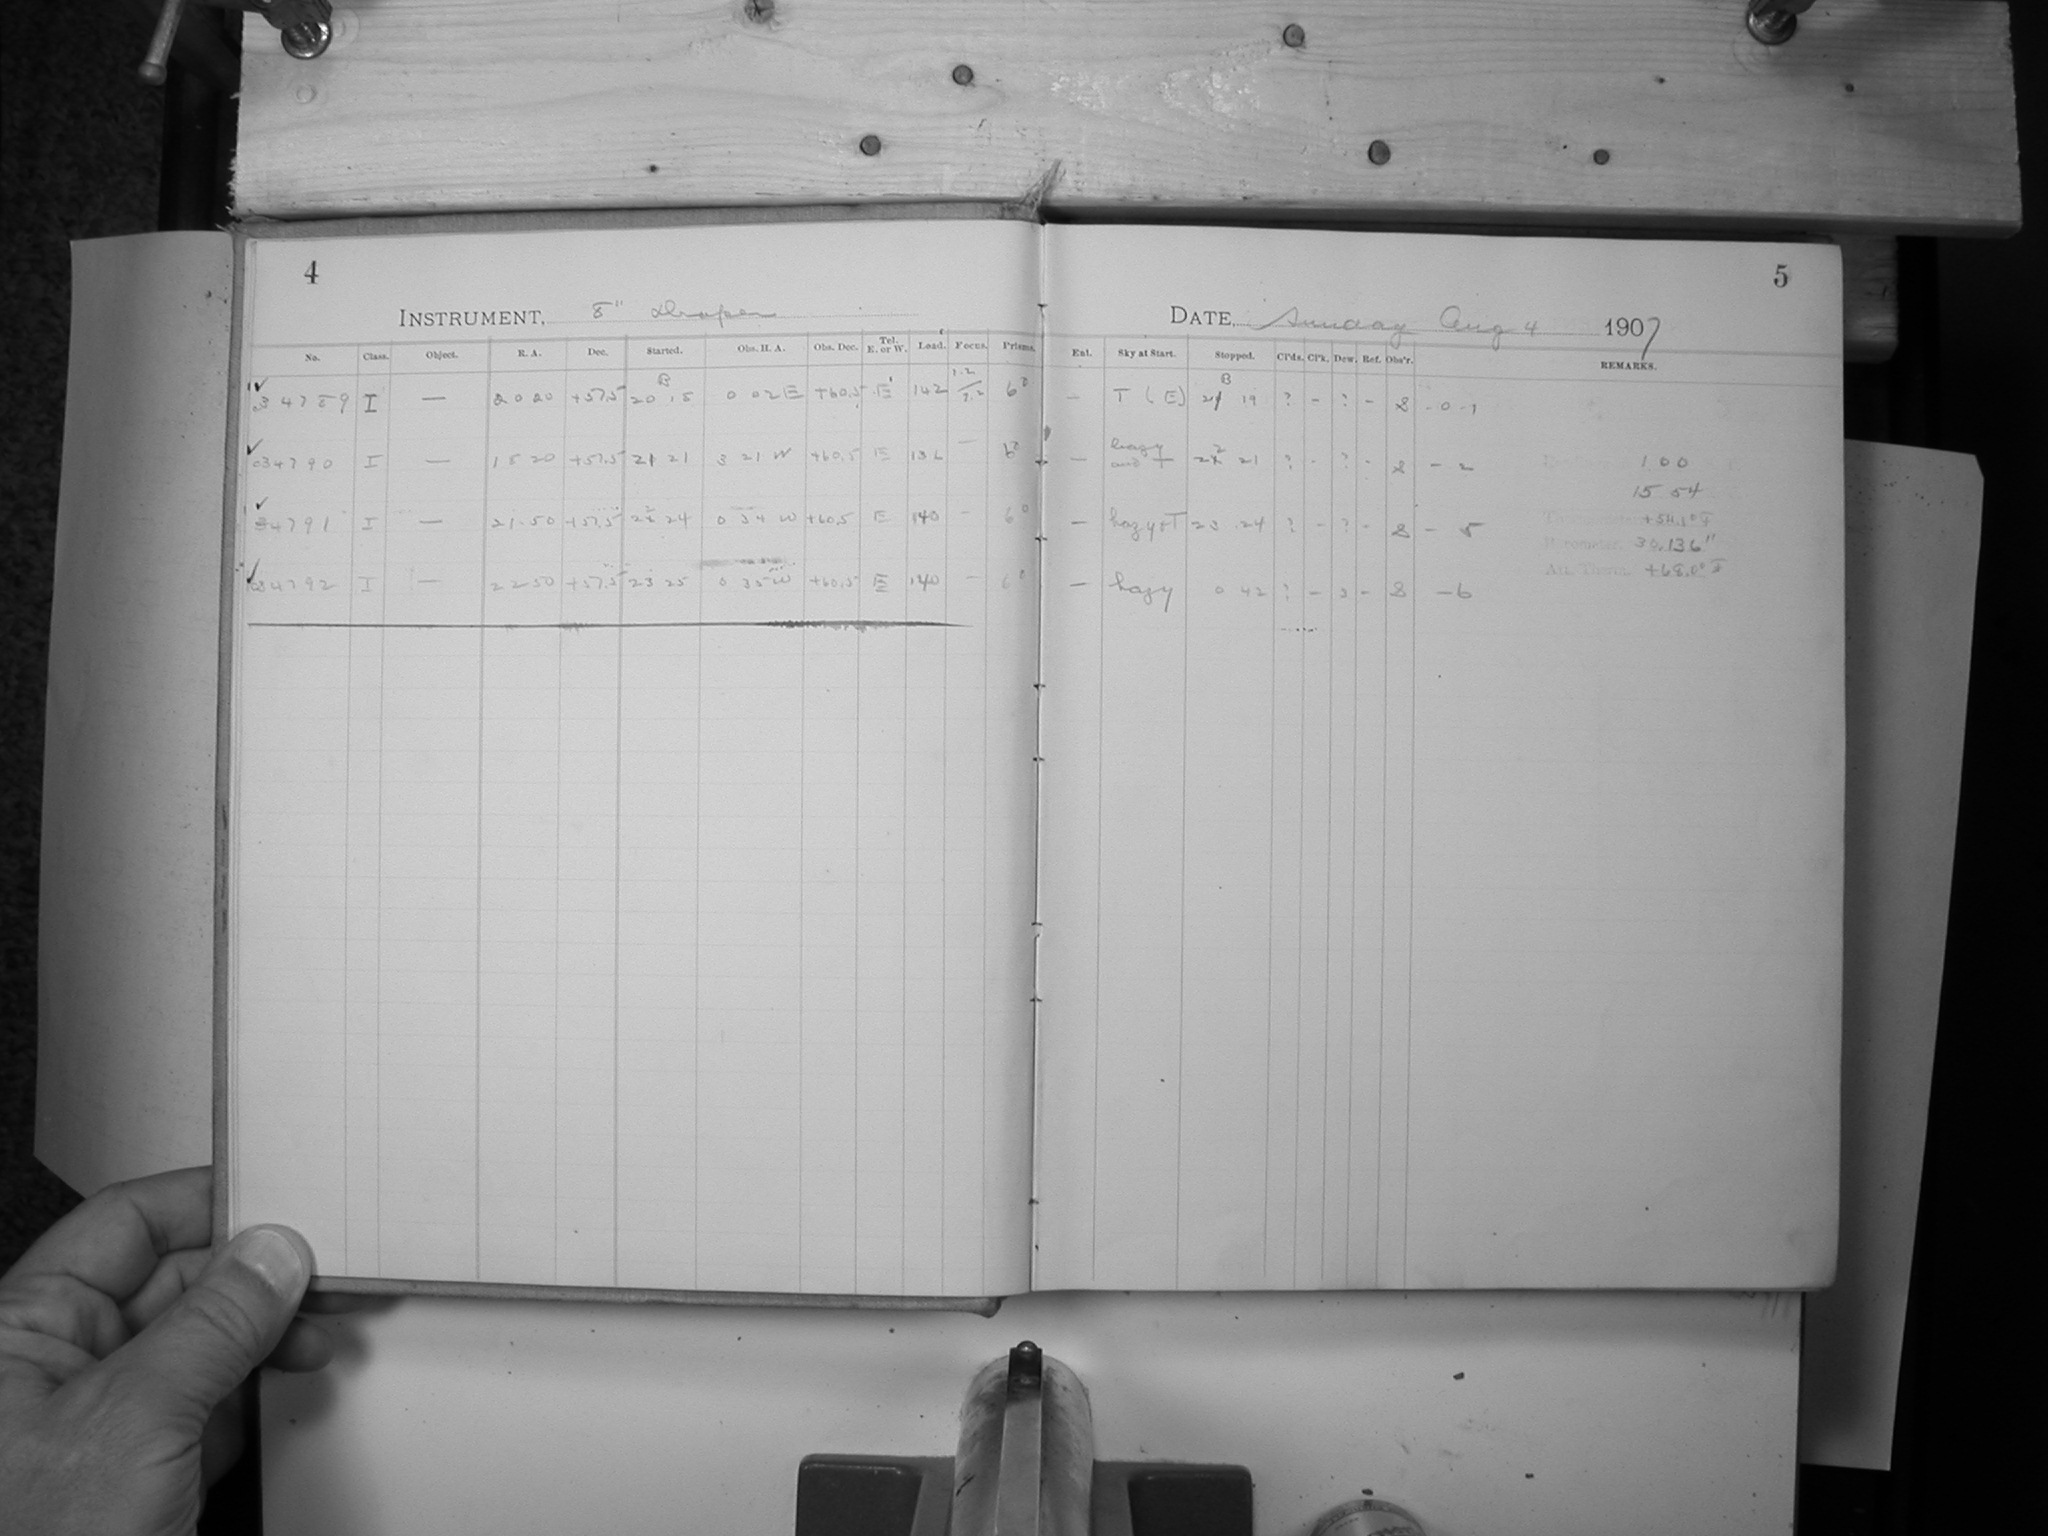 4
INSTRUMENT, 8" Draper
No. Class. Object. R. A. Dec. Started. Obs. H. A. Obs. Dec. Tel. E. or W. Load. Focus. Prisms.
34789 I — 20 20 +57.5 20 18 0 02 E +60.5 E 142 6°
34790 I — 18 20 +57.5 21 21 3 21 W +60.5 E 136 — 6°
34791 I — 21 50 +57.5 22 24 0 34 W +60.5 E 140 - 6°
34792 I — 22 50 +57.5 23 25 0 35 W +60.5 E 140 — 6°
5
DATE, Sunday Aug 4 1907
Ent. Sky at Start. Stopped. Cl'ds. Cl'k. Dew. Ref. Obs'r. REMARKS.
— T (E) 21 19 ? - ? - 8 - 0 - 1
— hazy and T 22 21 ? - ? - 8 - 2
— hazy + T 23 24 ? - ? - 8 - 5
— hazy 0 42 ? - 3 - 8 - 6
1 00
15 54
+54.1° F
Barometer, 30.136"
Att. Therm. +68.0° F